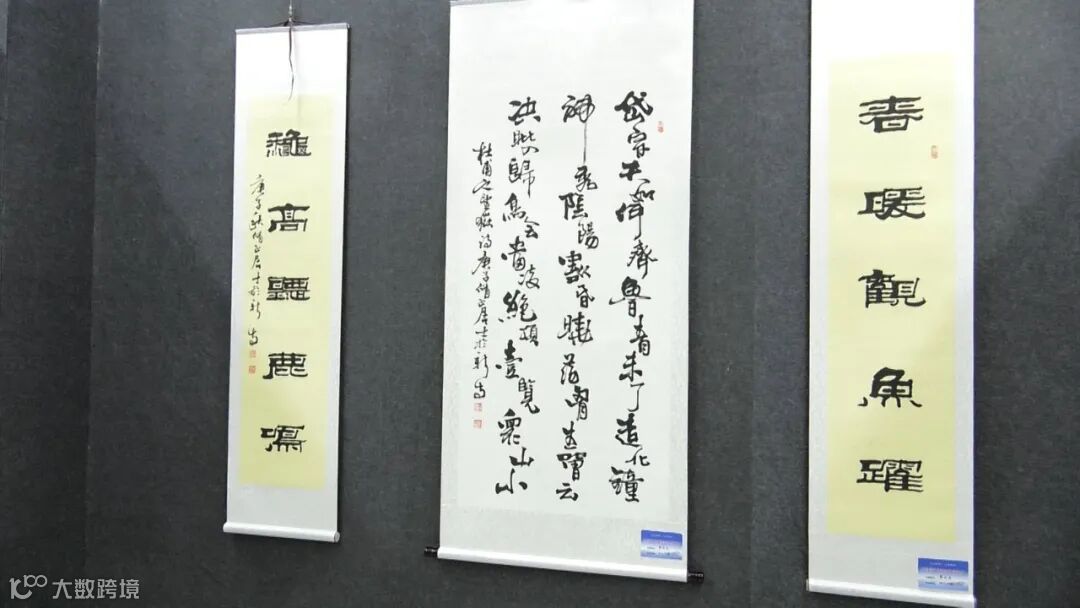 春暖觀魚躍
岱宗夫如何齊魯青未了造化鐘
神秀陰陽割昏曉蕩胸生曾云
決眥歸鳥會當凌絕頂壹覽眾山小
杜甫之望嶽詩庚子居士於新
龝高聽鹿鳴
庚子秋居士於新
大数跨境